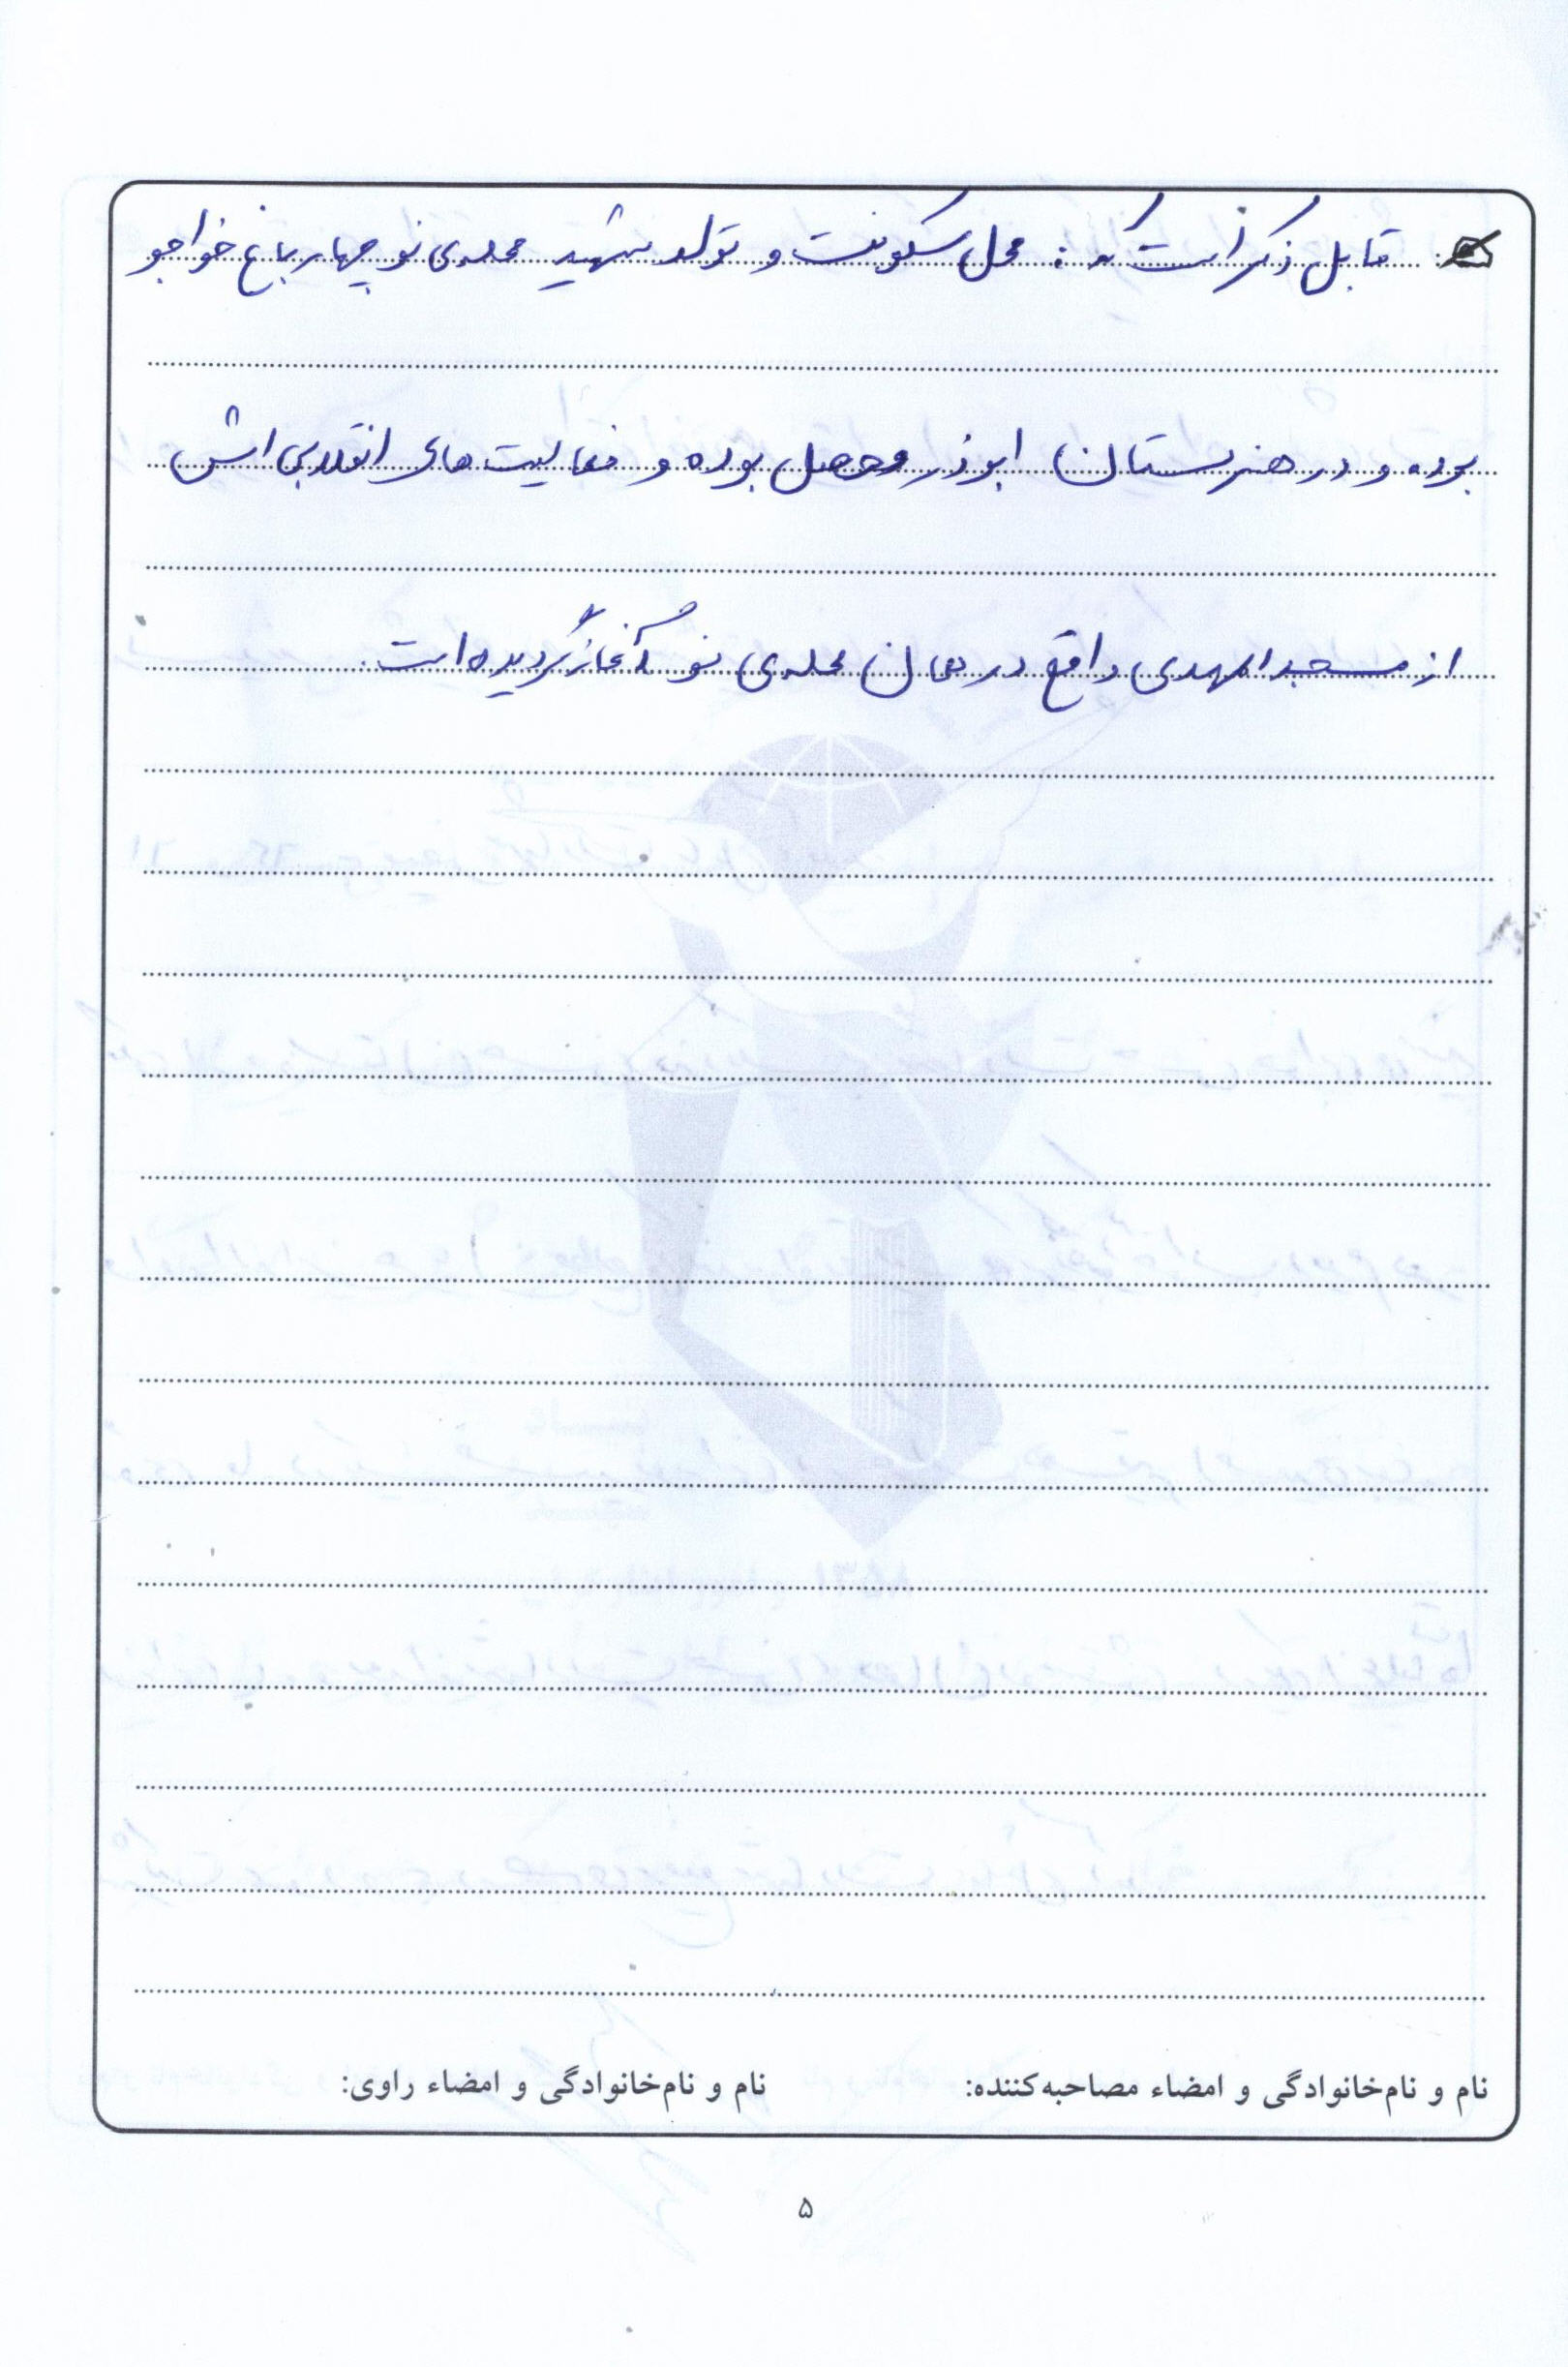 قابل ذکر است که : محل سکونت و تولد شهید محله‌ی نو چهارباغ خواجو
بوده و در هنرستان ابوذر محصل بوده و فعالیت‌های انقلابی اش
از مسجد المهدی واقع در همان محله‌ی نو آغاز گردیده است.
نام و نام‌خانوادگی و امضاء مصاحبه‌کننده: نام و نام‌خانوادگی و امضاء راوی:
۵